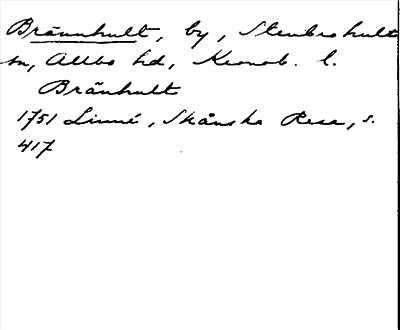 Brännhult, by, Stenbrohults
sn, Allbo hd, Kronob. l.
Bränhult
1751 Linné, Skånska Resa, s.
417